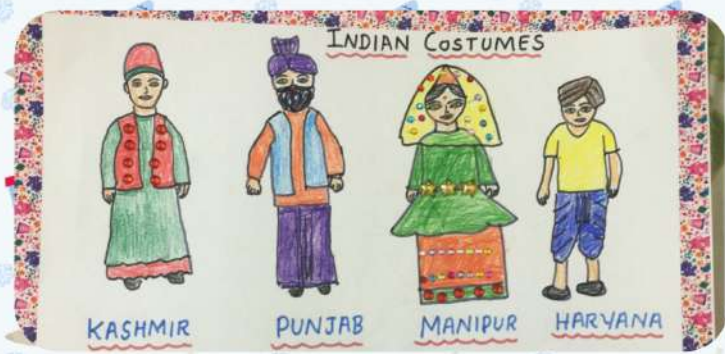 INDIAN COSTUMES
KASHMIR PUNJAB MANIPUR HARYANA